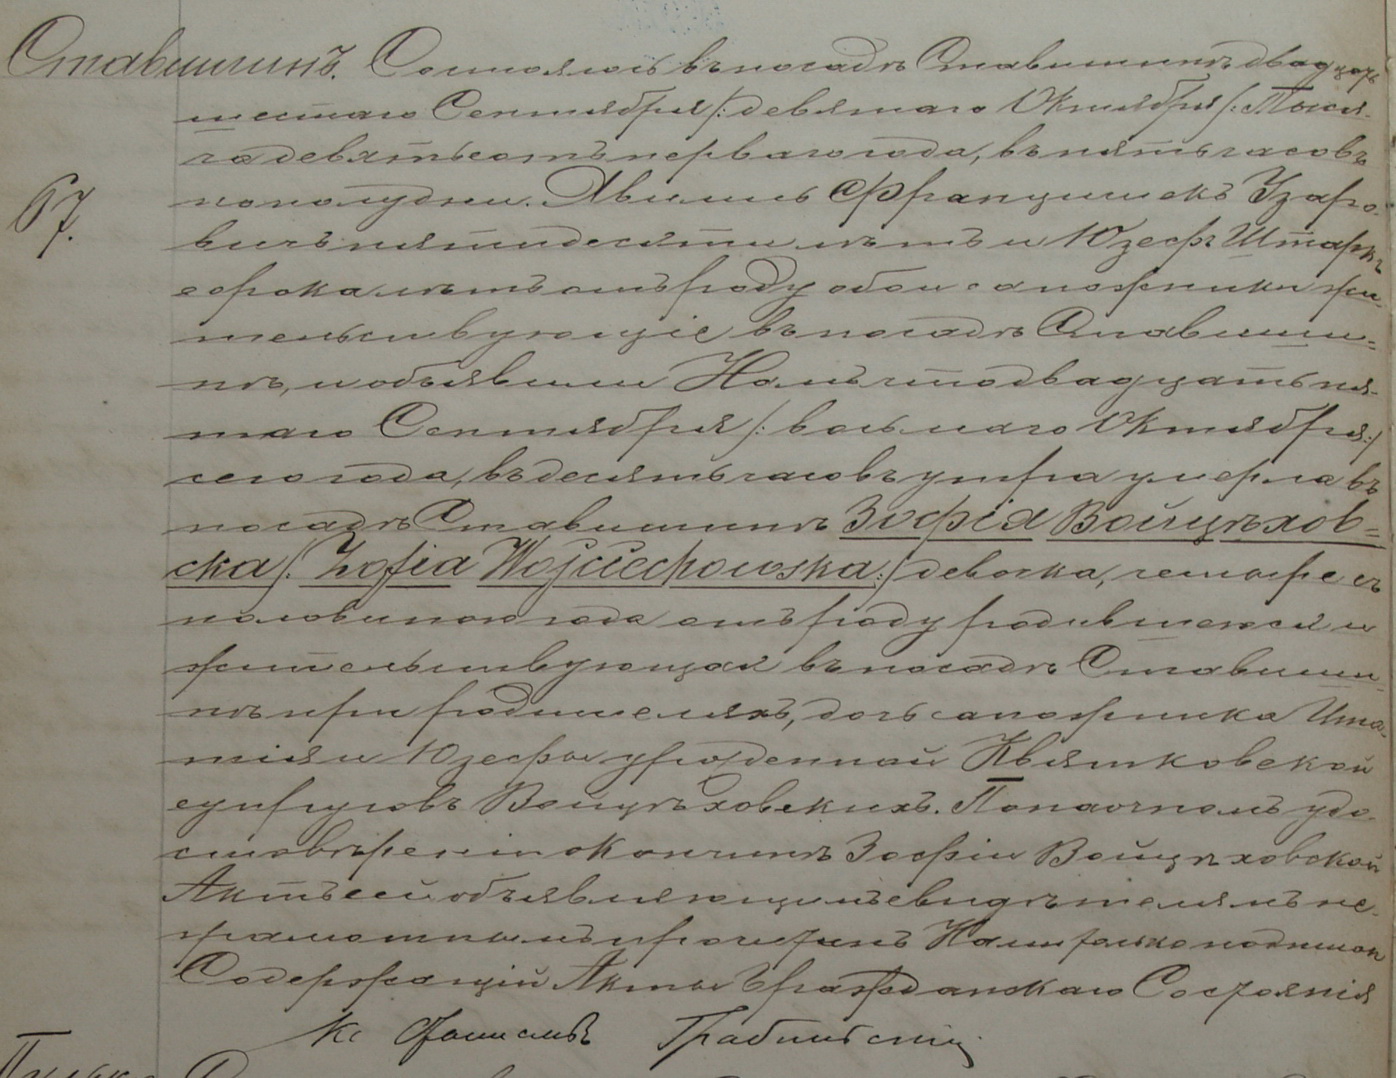 Ставишинъ. Состоялось въ посадѣ Ставишинѣ двадцать
шестаго Сентября /: девятаго Октября :/ Тысяча
девятьсотъ перваго года, въ пять часовъ
пополудни. Явились Францишекъ
67.
вичъ пятидесяти лѣтъ и Юзефъ Штаркъ
сорока лѣтъ отъ роду обои сапожники жи-
тельствующіе въ посадѣ Ставиши-
нѣ, и объявили Намъ что двадцать пя-
таго Сентября /: восьмаго Октября :/
сего года, въ десять часовъ утра умерла въ
посадѣ Ставишинѣ Зофія Войцѣхов-
ска /: Zofia Wojciechowska :/ девочка, четыре съ
половиною года отъ роду родившаяся и
жительствующая въ посадѣ Ставиши-
нѣ при родителяхъ, дочь сапожника Игна-
тія и Юзефы урожденной Квятковской
супруговъ Войцѣховскихъ. По наочномъ удо-
стовѣреніи о кончинѣ Зофіи Войцѣховской
Актъ сей объявляющимъ свидѣтелямъ не-
грамотнымъ прочитанъ Нами только подписан
Содержащій Акты Гражданскаго Состоянія
Кс